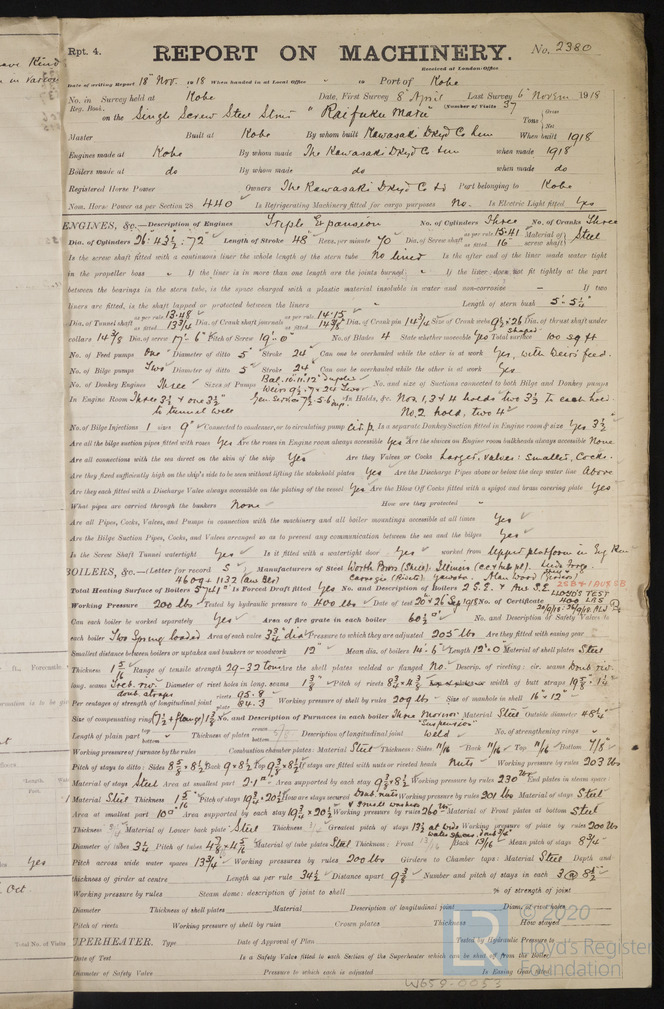 Rpt. 4.
REPORT ON MACHINERY.
No. 2380
Received at London Office
Date of writing Report 18th Nov. 1918 When handed in at Local Office Port of Kobe
No. in Survey held at Kobe Date, First Survey 8th April Last Survey 6th Novem 1918
Reg. Book. (Number of Visits 37
on the Single Screw Steel Strm "Raifuku Maru" Tons Gross Net
Master Built at Kobe By whom built Kawasaki Dkyd Co Lim When built 1918
Engines made at Kobe By whom made The Kawasaki Dkyd Co Lim when made 1918
Boilers made at do By whom made do when made do
Registered Horse Power Owners The Kawasaki Dkyd Co Ld Port belonging to Kobe
Nom. Horse Power as per Section 28 440 Is Refrigerating Machinery fitted for cargo purposes No. Is Electric Light fitted Yes
ENGINES, &c.—Description of Engines Triple Expansion No. of Cylinders Three No. of Cranks Three
Dia. of Cylinders 26: 43½: 72" Length of Stroke 48" Revs. per minute 70 Dia. of Screw shaft as per rule 15.41 as fitted 16" Material of screw shaft Steel
Is the screw shaft fitted with a continuous liner the whole length of the stern tube No liner Is the after end of the liner made water tight
in the propeller boss If the liner is in more than one length are the joints burned If the liner does not fit tightly at the part
between the bearings in the stern tube, is the space charged with a plastic material insoluble in water and non-corrosive If two
liners are fitted, is the shaft lapped or protected between the liners Length of stern bush 5'-5¼"
Dia. of Tunnel shaft as per rule 13.48 as fitted 13¾ Dia. of Crank shaft journals as per rule 14.15 as fitted 14⅜ Dia. of Crank pin 14¾ Size of Crank webs 9½ x 26 Dia. of thrust shaft under
collars 14⅜ Dia. of screw 17'-6" Pitch of Screw 19'-0" No. of Blades 4 State whether moveable Yes Total surface 100 sq ft
No. of Feed pumps One Diameter of ditto 5" Stroke 24" Can one be overhauled while the other is at work Yes, with Weirs feed.
No. of Bilge pumps Two Diameter of ditto 5" Stroke 24" Can one be overhauled while the other is at work Yes
No. of Donkey Engines Three Sizes of Pumps No. and size of Suctions connected to both Bilge and Donkey pumps
In Engine Room Three 3½ & one 3½" In Holds, &c. Nos. 1, 3 & 4 holds two 3½ to each hold.
to tunnel well No. 2 hold, two 4"
No. of Bilge Injections 1 sizes 9" Connected to condenser, or to circulating pump Is a separate Donkey Suction fitted in Engine room & size Yes 3½"
Are all the bilge suction pipes fitted with roses Yes Are the roses in Engine room always accessible Yes Are the sluices on Engine room bulkheads always accessible None
Are all connections with the sea direct on the skin of the ship Yes Are they Valves or Cocks Larger, valves: smaller, Cocks.
Are they fixed sufficiently high on the ship's side to be seen without lifting the stokehold plates Yes Are the Discharge Pipes above or below the deep water line Above
Are they each fitted with a Discharge Valve always accessible on the plating of the vessel Yes Are the Blow Off Cocks fitted with a spigot and brass covering plate Yes
What pipes are carried through the bunkers None How are they protected
Are all Pipes, Cocks, Valves, and Pumps in connection with the machinery and all boiler mountings accessible at all times Yes
Are the Bilge Suction Pipes, Cocks, and Valves arranged so as to prevent any communication between the sea and the bilges Yes
Is the Screw Shaft Tunnel watertight Yes Is it fitted with a watertight door Yes worked from Upper platform in Eng Rm
BOILERS, &c.—(Letter for record S) Manufacturers of Steel
Total Heating Surface of Boilers 5741 Is Forced Draft fitted Yes No. and Description of Boilers 2 S.E. & Aux S.E.
4609 + 1132 (Aux Blr)
2SB & 1 AUX SB
LLOYD'S TEST
400 LBS
Working Pressure 200 lbs Tested by hydraulic pressure to 400 lbs Date of test 20 & 26 Sep 1918 No. of Certificate
Can each boiler be worked separately Yes Area of fire grate in each boiler No. and Description of Safety Valves to
each boiler Two Spring loaded Area of each valve 3¾ dia Pressure to which they are adjusted 205 lbs Are they fitted with easing gear
Smallest distance between boilers or uptakes and bunkers or woodwork 12" Mean dia. of boilers 14'-6" Length 12'-0 Material of shell plates Steel
Thickness 1 5/16 Range of tensile strength 29-32 tons Are the shell plates welded or flanged No. Descrip. of riveting: cir. seams Doub riv.
long. seams Treb. riv doub straps Diameter of rivet holes in long. seams 1⅜ Pitch of rivets width of butt straps
Per centages of strength of longitudinal joint rivets 95.8 plate 84.3 Working pressure of shell by rules 209 lbs Size of manhole in shell 16" x 12"
Size of compensating ring No. and Description of Furnaces in each boiler Three Morison Suspension Material Steel Outside diameter 48¼"
Length of plain part top bottom Thickness of plates crown bottom Description of longitudinal joint Weld No. of strengthening rings
Working pressure of furnace by the rules Combustion chamber plates: Material Steel Thickness: Sides 11/16 Back 11/16 Top 11/16 Bottom 7/8"
Pitch of stays to ditto: Sides 8⅝ x 8½ Back 9 x 8½ Top 9⅜ x 8½ If stays are fitted with nuts or riveted heads Nuts Working pressure by rules 203 lbs
Material of stays Steel Area at smallest part 2.1 Area supported by each stay 9⅜ x 8½ Working pressure by rules 230 lbs End plates in steam space:
Material Steel Thickness 1 5/16 Pitch of stays 19¾ x 20½ How are stays secured Doub. nuts & small washers Working pressure by rules 201 lbs Material of stays Steel
Area at smallest part 10" Area supported by each stay 19¾ x 20½ Working pressure by rules 260 lbs Material of Front plates at bottom Steel
Thickness Material of Lower back plate Steel Thickness Greatest pitch of stays Working pressure of plate by rules 200 lbs
Diameter of tubes 3¼ Pitch of tubes 4⅞ x 4 5/16 Material of tube plates Steel Thickness: Front 13/16 Back 13/16 Mean pitch of stays 8¾
Pitch across wide water spaces 13¾" Working pressures by rules 200 lbs Girders to Chamber tops: Material Steel Depth and
thickness of girder at centre Length as per rule 34½ Distance apart 9⅜ Number and pitch of stays in each 3 @ 8½
Working pressure by rules Steam dome: description of joint to shell % of strength of joint
Diameter Thickness of shell plates Material Description of longitudinal joint Diam. of rivet holes
Pitch of rivets Working pressure of shell by rules Crown plates Thickness How stayed
UPERHEATER. Type Date of Approval of Plan Tested by Hydraulic Pressure to
Date of Test Is a Safety Valve fitted to each Section of the Superheater which can be shut off from the Boiler
Diameter of Safety Valve Pressure to which each is adjusted Is Easing Gear fitted
W659-0053
© 2020
Lloyd's Register
Foundation